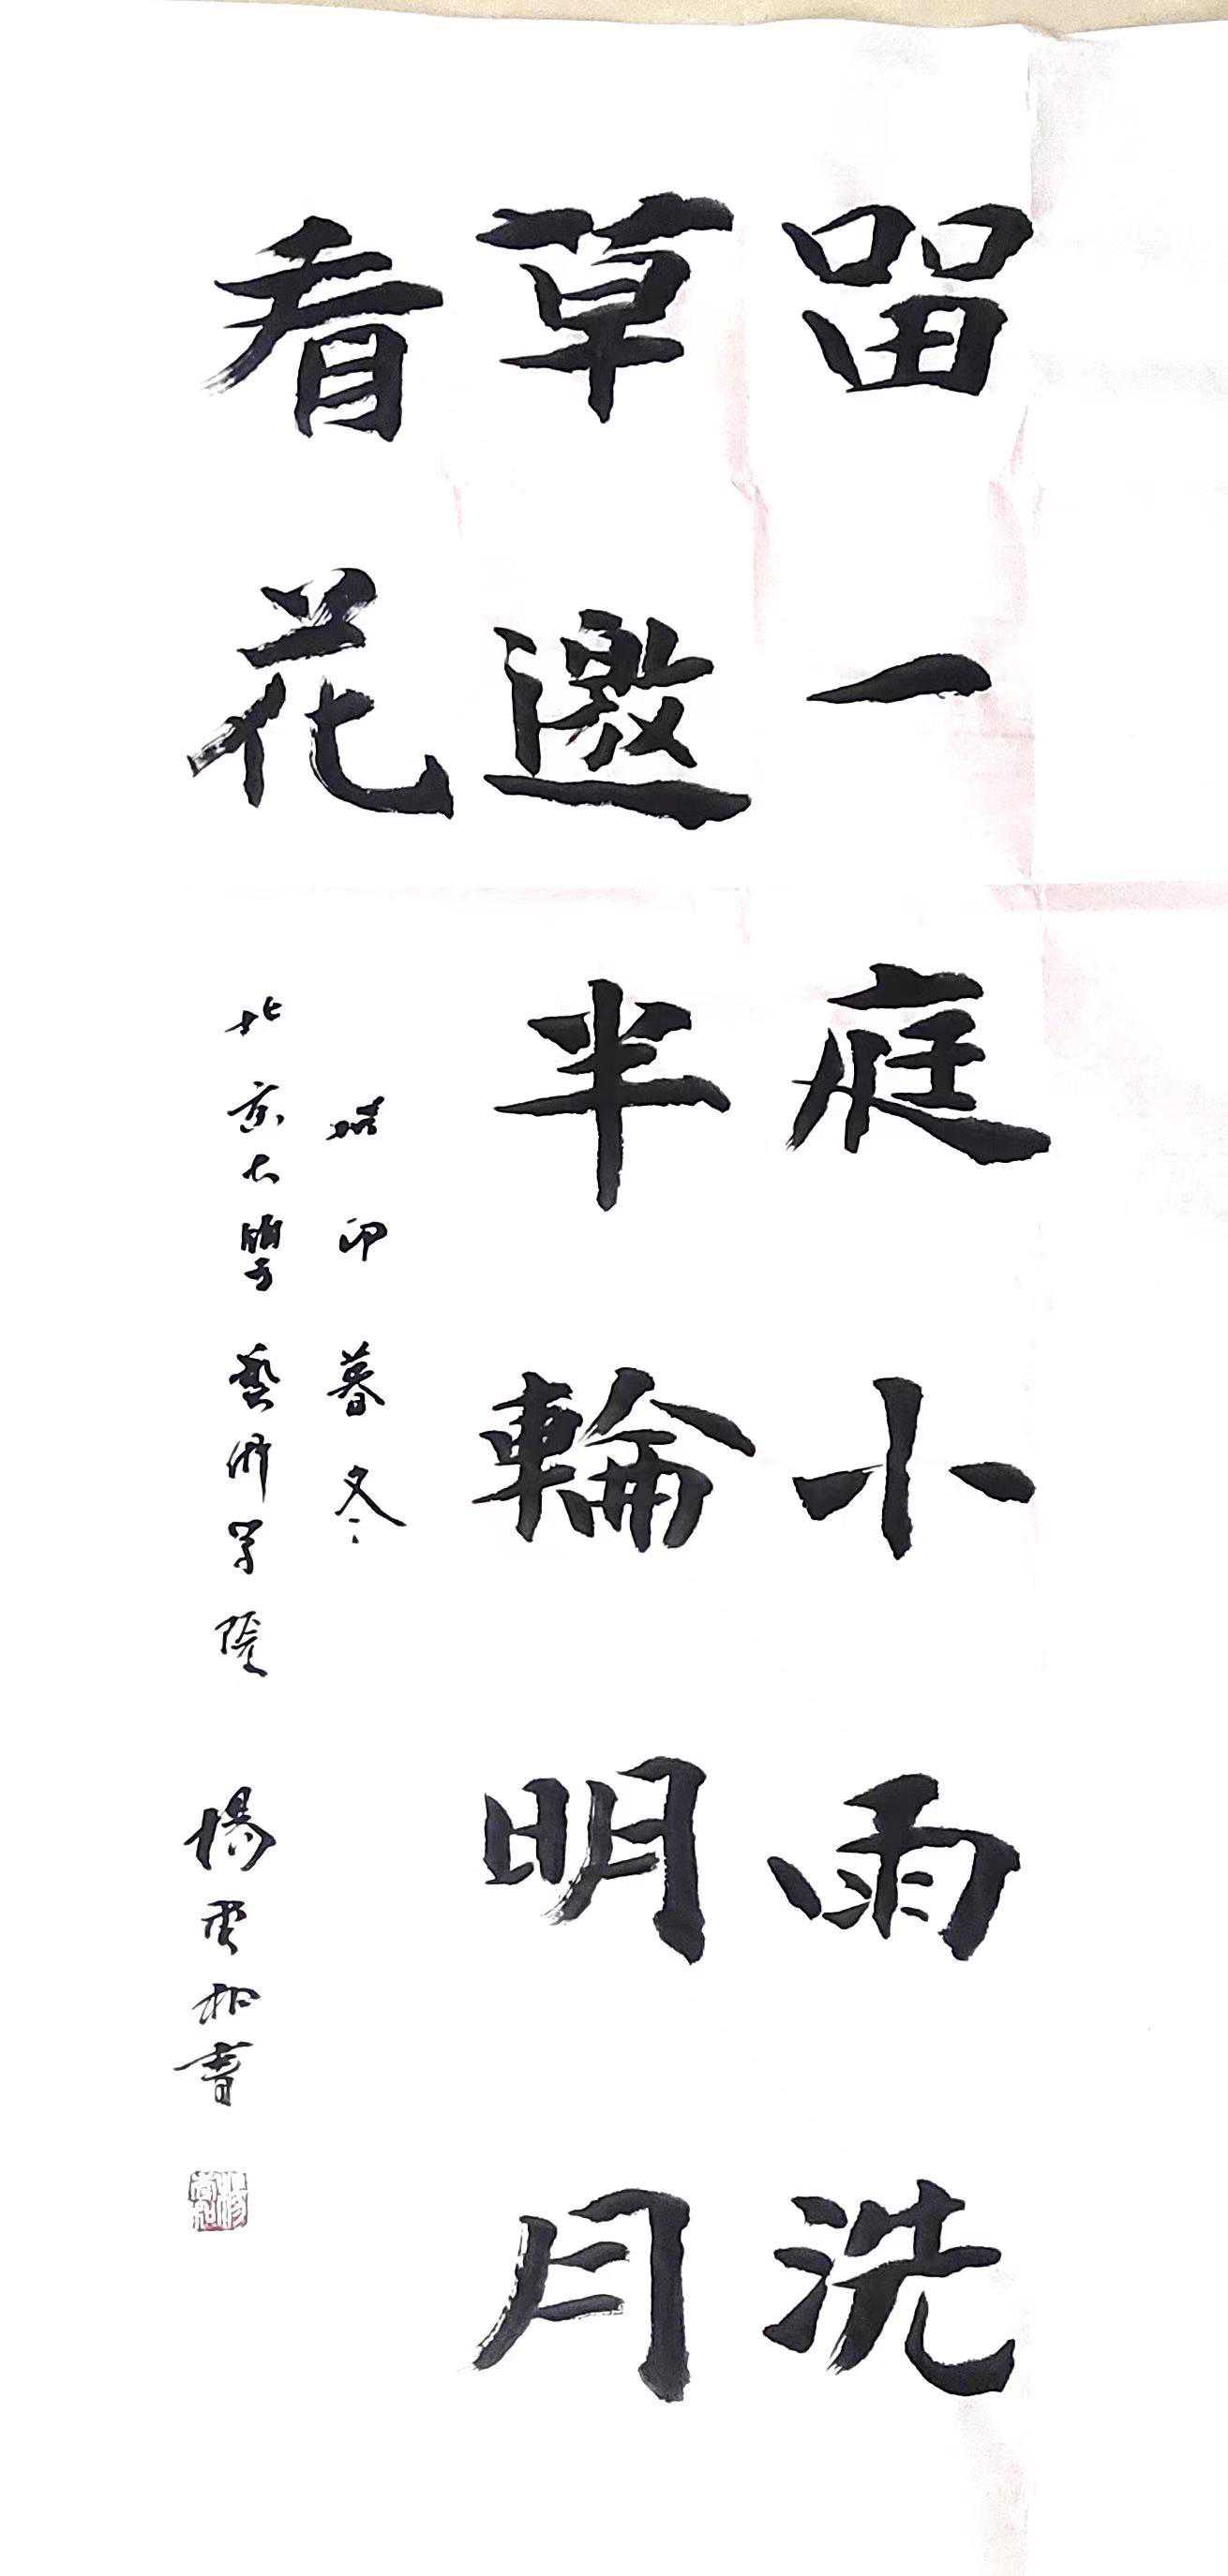 留一庭小雨洗
草邀半輪明月
看花
時卯暮冬
北京大學藝術学院 楊雲相書